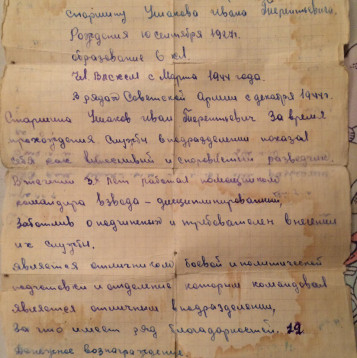 старшину Ушакова Ивана Терентьевича.
Рождения 10 сентября 1927г.
образование 6 кл.
Чл. ВЛКСМ с Марта 1944 года.
В рядах Советской Армии с декабря 1944г.
Старшина Ушаков Иван Терентьевич За время
прохождения Службы в подразделении показал
себя как и разведчик.
В течении лет работал помощником
командира взвода – дисциплинированный,
Заботлив о подчиненых и требователен в несении
их службы.
является отличником боевой и политической
подготовки и отделение которым командовал
является отличным в подразделении,
За что имеет ряд благодарностей. 12
Денежное вознаграждение.